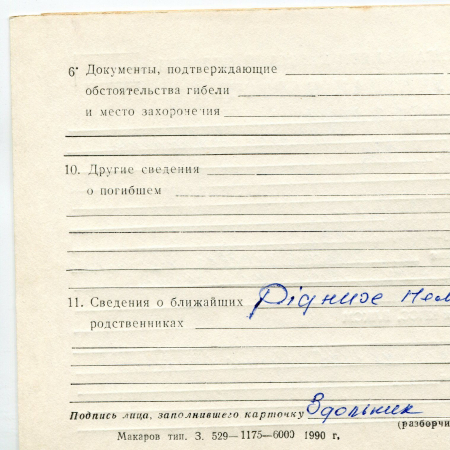 6. Документы, подтверждающие
обстоятельства гибели
и место захоронения
10. Другие сведения
о погибшем
11. Сведения о ближайших Рідних нем
родственниках
Подпись лица, заполнившего карточку Здольник
(разборчи
Макаров тип. З. 529—1175—6000 1990 г.